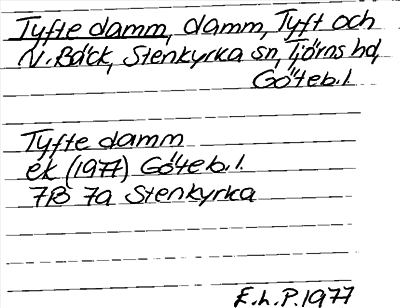 Tyfte damm, damm, Tyft och
N. Bäck, Stenkyrka sn, Tjörns hd,
Göteb. l.
Tyfte damm
ek (1977) Göteb. l.
7B 7a Stenkyrka
E.L.P. 1977